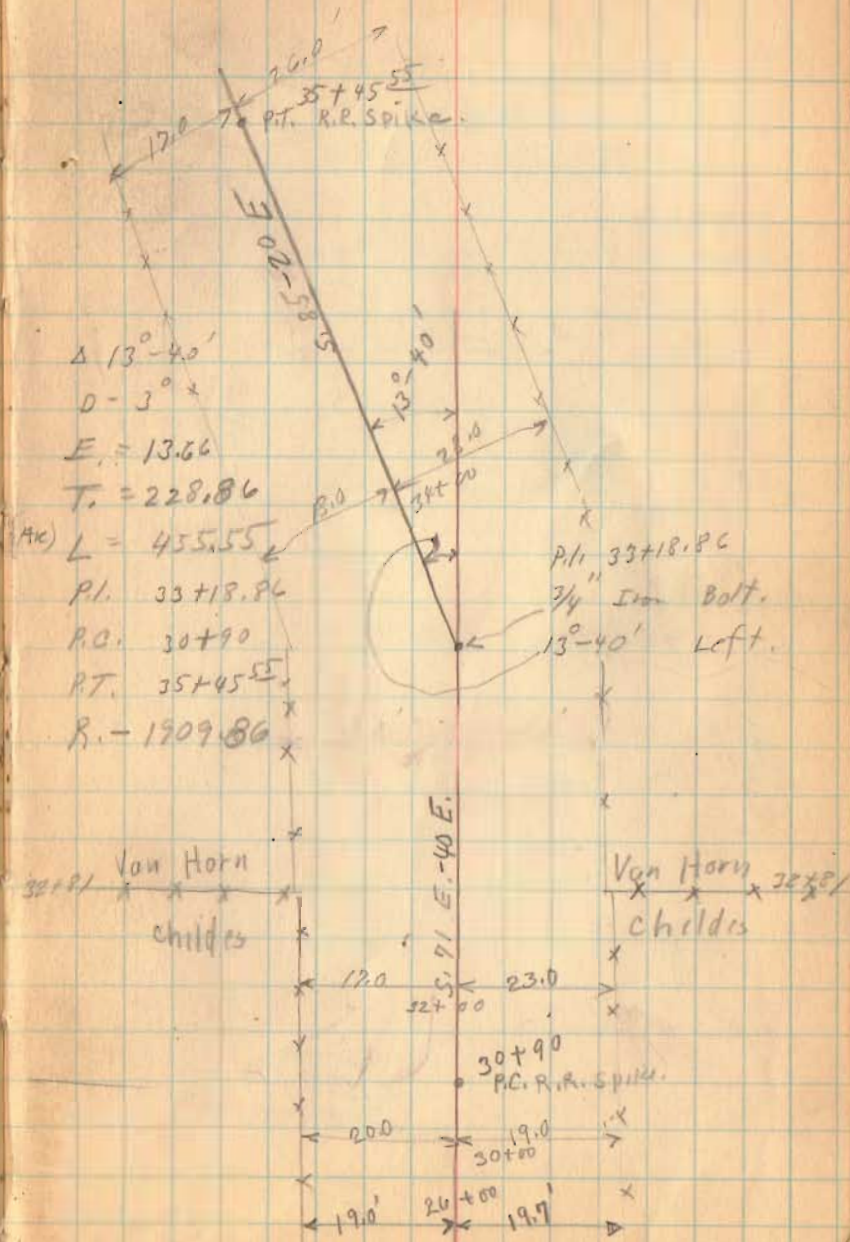 26.0'
17.0
35+45 55
P.T. R.R. Spike.
S. 85-20 E
13°-40'
Δ 13°-40'
D - 3°
E. = 13.66
T. = 228.86
L = 455.55
P.I. 33+18.86
P.C. 30+90
P.T. 35+45 55
R. - 1909.86
34+00
P.I. 33+18.86
3/4" Iron Bolt.
13°-40' Left.
S. 71 E.-40 E.
32+81 Van Horn
Childes
Van Horn 32+81
Childes
17.0 23.0
32+00
30+90
P.C. R.R. Spike.
20.0 19.0
30+00
26+00
19.0' 19.7'